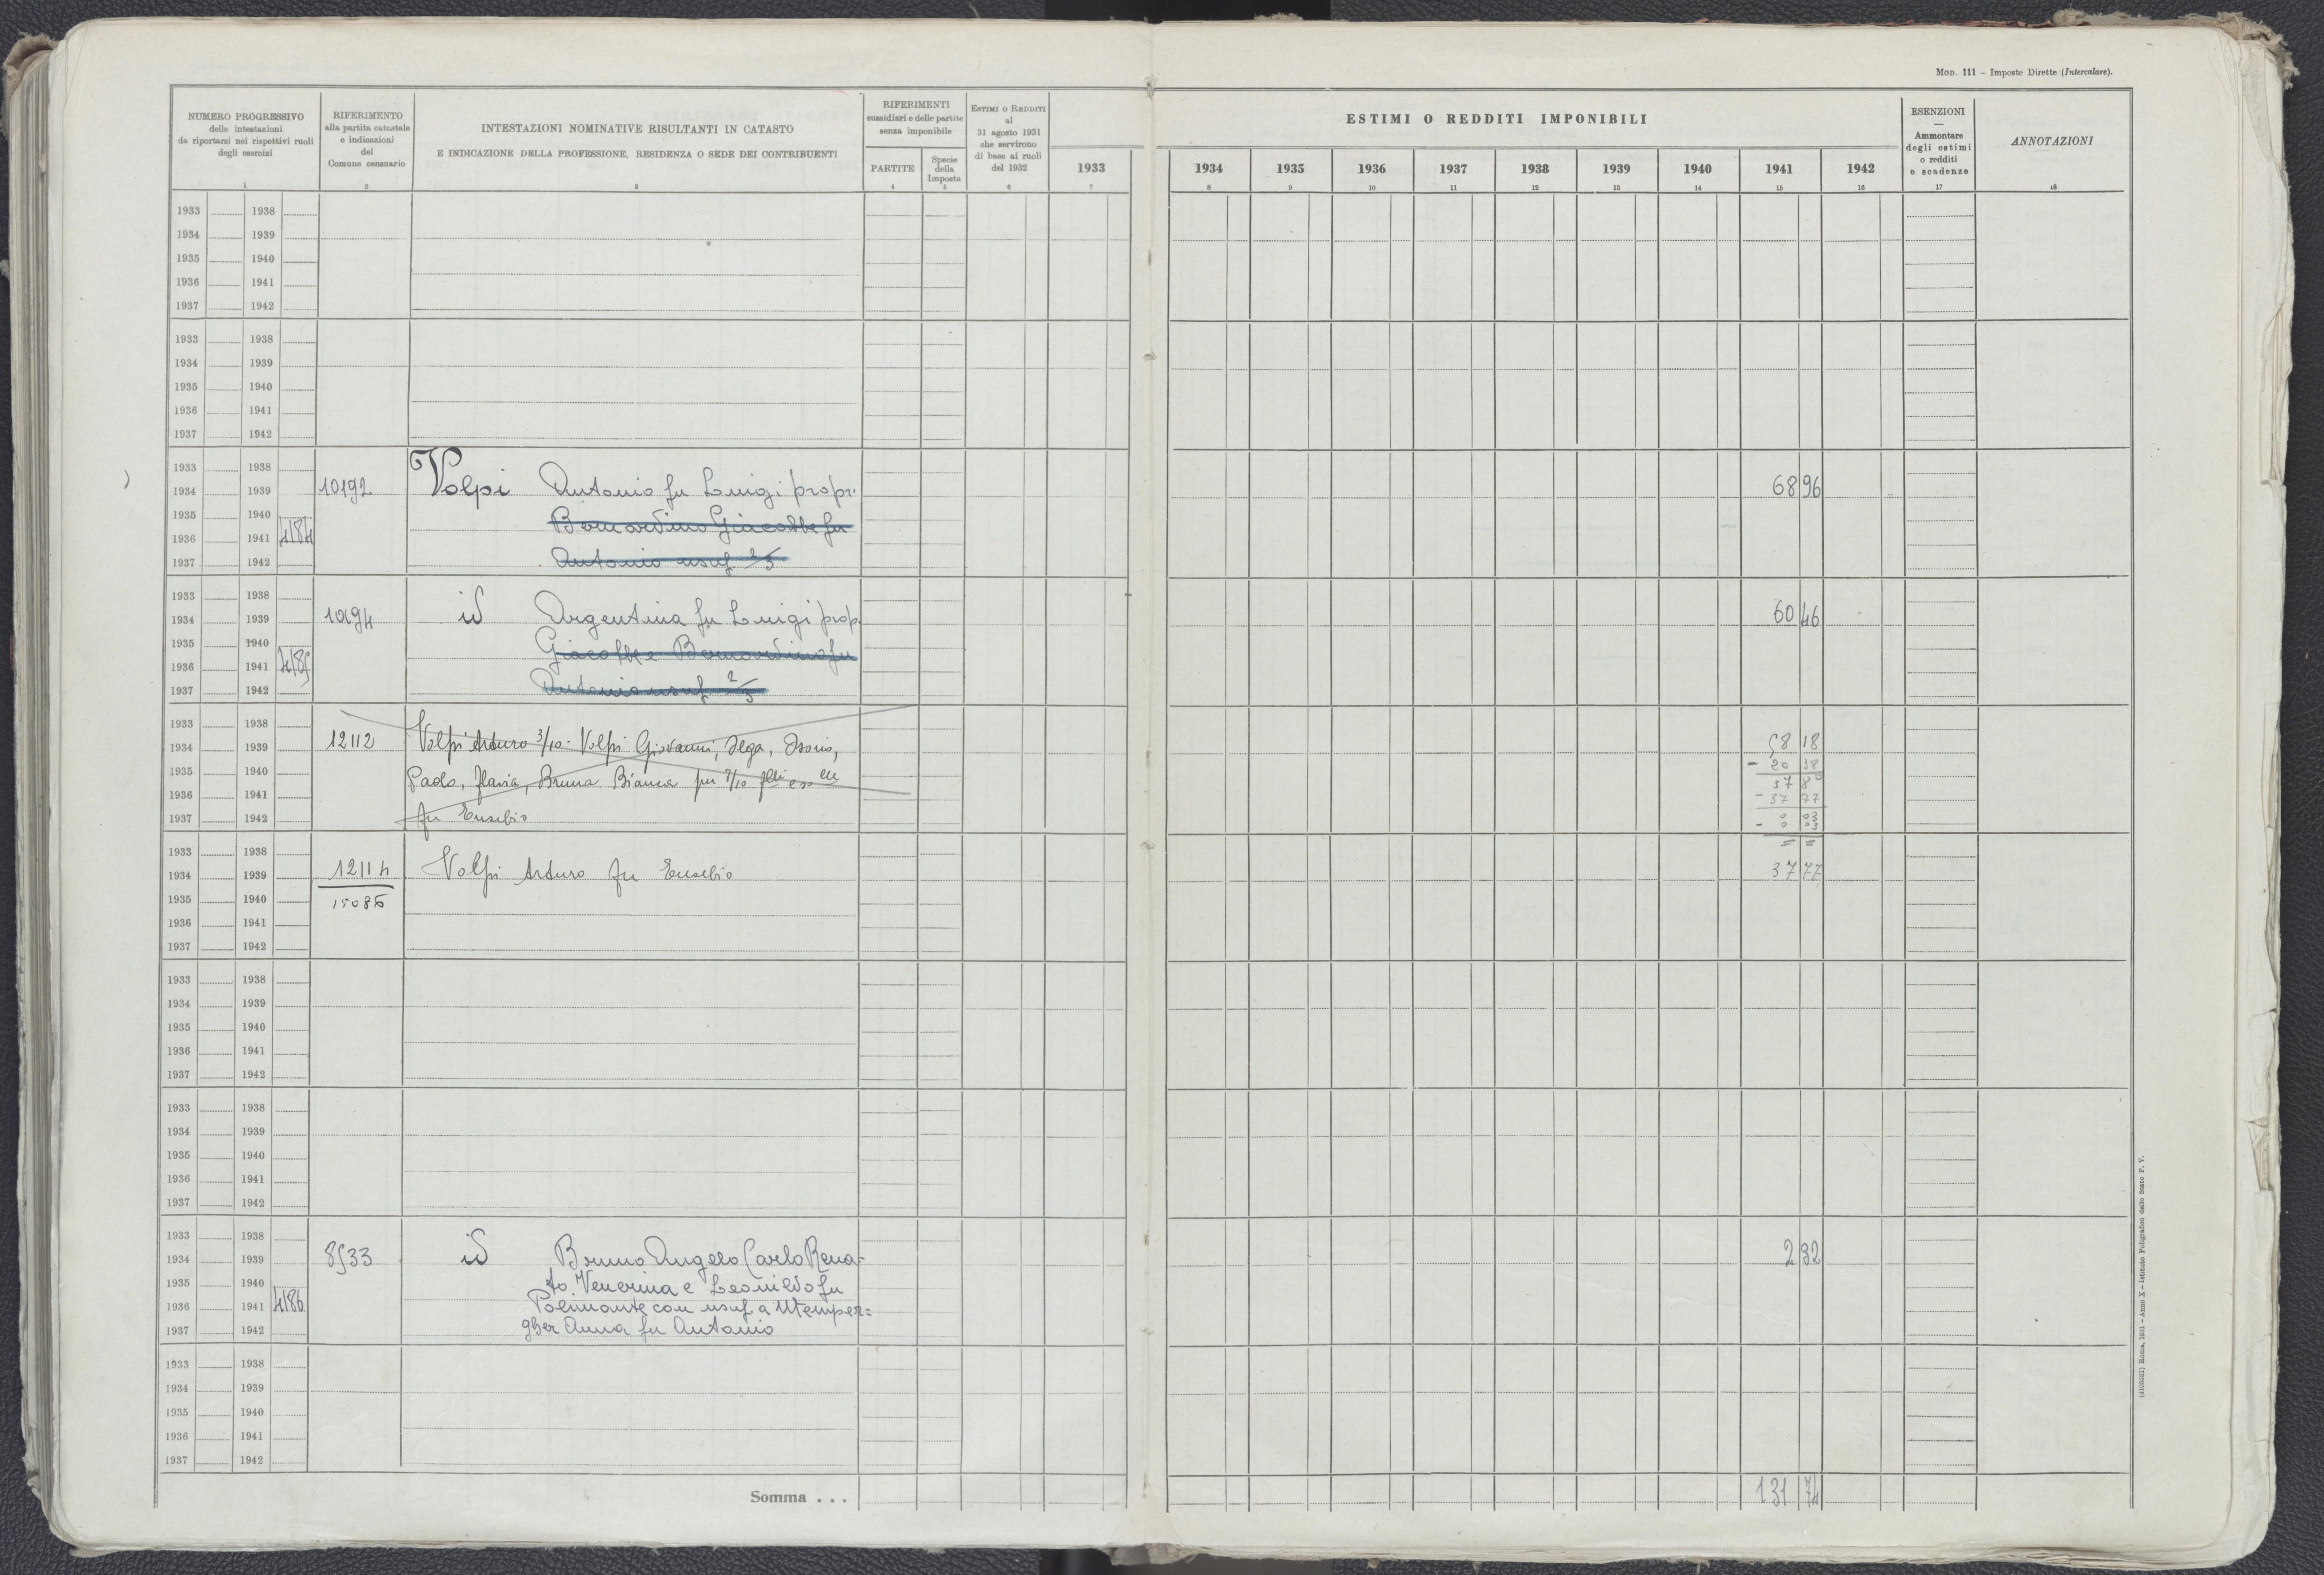 MOD. 111 – Imposte Dirette (Intercalare).
NUMERO PROGRESSIVO
delle intestazioni
da riportarsi nei rispettivi ruoli
degli esercizi
1
RIFERIMENTO
alla partita catastale
e indicazioni
del
Comune censuario
2
INTESTAZIONI NOMINATIVE RISULTANTI IN CATASTO
E INDICAZIONE DELLA PROFESSIONE, RESIDENZA O SEDE DEI CONTRIBUENTI
3
RIFERIMENTI
sussidiari e delle partite
senza imponibile
PARTITE
4
Specie
della
Imposta
5
ESTIMI O REDDITI
al
31 agosto 1931
che servirono
di base ai ruoli
del 1932
6
ESTIMI O REDDITI IMPONIBILI
1933 1934 1935 1936 1937 1938 1939 1940 1941 1942
7 8 9 10 11 12 13 14 15 16
ESENZIONI
—
Ammontare
degli estimi
o redditi
e scadenze
17
ANNOTAZIONI
18
1933 1938
1934 1939
1935 1940
1936 1941
1937 1942
1933 1938
1934 1939
1935 1940
1936 1941
1937 1942
1933 1938
1934 1939 10192 Volpi Antonio fu Luigi propr. 68 96
1935 1940 Bernardino Giacobbe fu
1936 1941 4184
1937 1942 Antonio usuf 2/3
1933 1938
1934 1939 10194 id Argentina fu Luigi prop. 60 46
1935 1940 Giacobbe Bernardino fu
1936 1941 4185
1937 1942 Antonio usuf 2/3
1933 1938
1934 1939 12112 Volpi Arturo 3/10 - Volpi Giovanni, Olga, 58 18
1935 1940 Paolo, Flavia, Bruna Bianca per 7/10 - 20 38
1936 1941 37 80
- 37 77
1937 1942 fu Eusebio 0 03
- 0 03
= =
1933 1938
1934 1939 12114 Volpi Arturo fu Eusebio 37 77
1935 1940 15086
1936 1941
1937 1942
1933 1938
1934 1939
1935 1940
1936 1941
1937 1942
1933 1938
1934 1939
1935 1940
1936 1941
1937 1942
1933 1938
1934 1939 8533 id Bruno Angelo Carlo Rena- 2 32
1935 1940 to Venerina e Leonildo fu
1936 1941 4186 Polimante con usuf. a
1937 1942 gher Anna fu Antonio
1933 1938
1934 1939
1935 1940
1936 1941
1937 1942
Somma . . . 131 74
(4105551) Roma, 1931 – Anno X – Istituto Poligrafico dello Stato P. V.